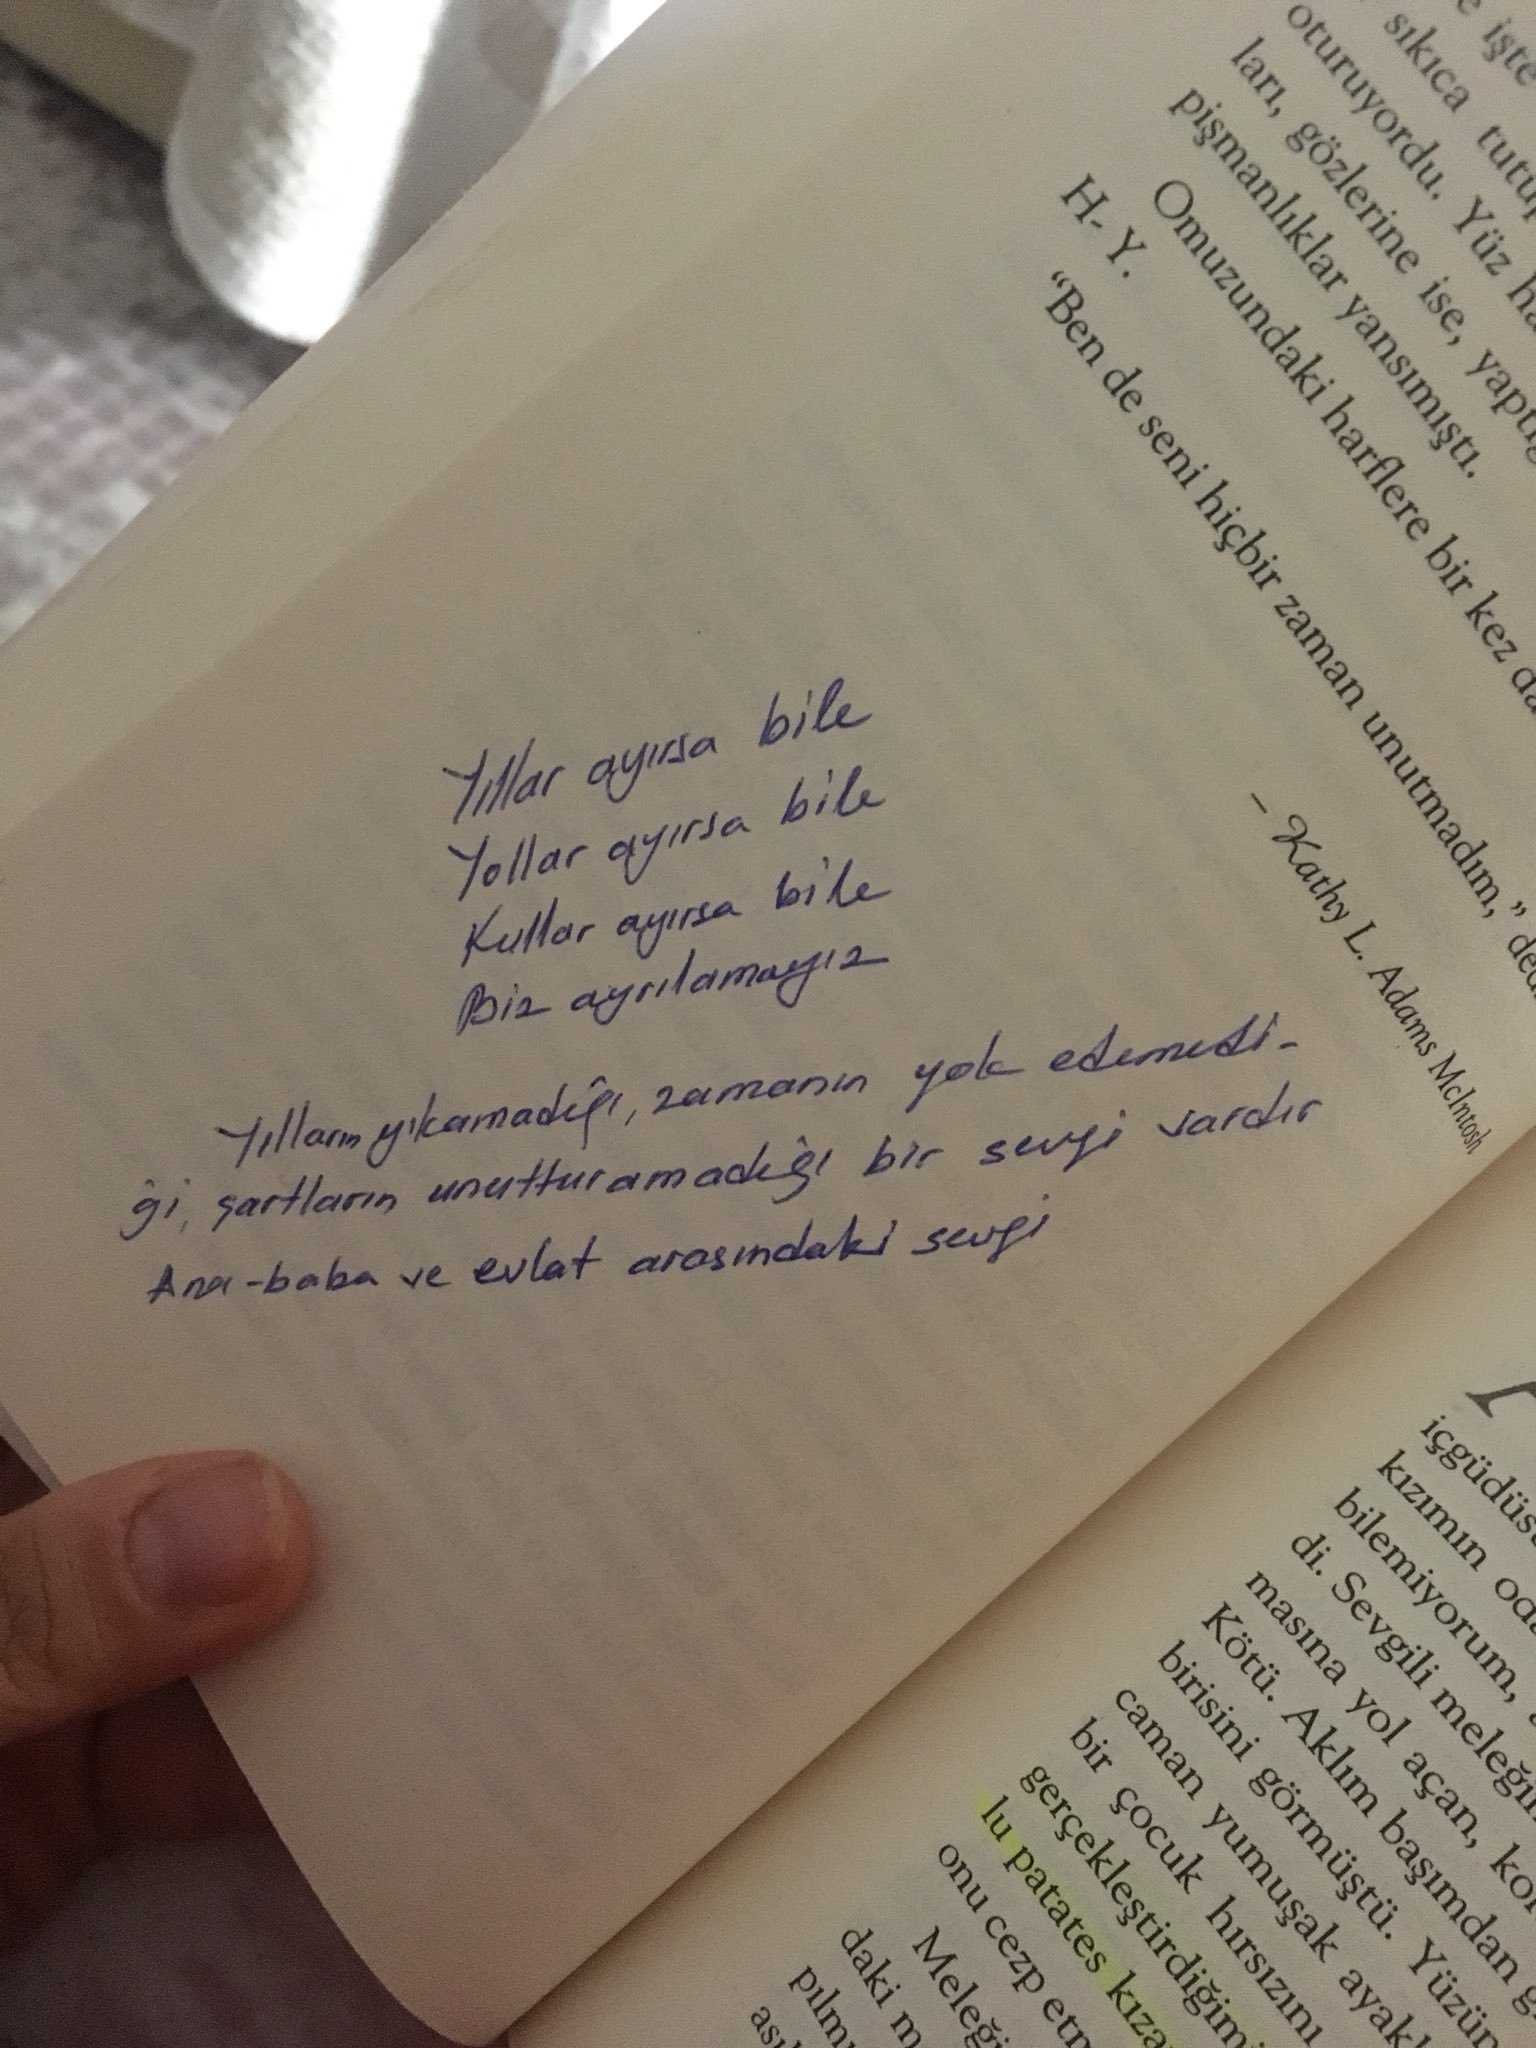 işte
sıkıca
oturuyordu. Yüz
ları, gözlerine ise,
pişmanlıklar yansımıştı.
Omuzundaki harflere bir kez
H- Y.
“Ben de seni hiçbir zaman unutmadım,”
– Kathy L. Adams McIntosh
Yıllar ayırsa bile
Yollar ayırsa bile
Kullar ayırsa bile
Biz ayrılamayız
Yılların yıkamadığı, zamanın yok edemedi-
ği, şartların unutturamadığı bir sevgi vardır
Ana-baba ve evlat arasındaki sevgi
kızımın
bilemiyorum,
di. Sevgili
masına yol açan,
Kötü. Aklım başımdan
birisini görmüştü.
caman yumuşak
bir çocuk hırsızını
lu patates
onu cezp
daki